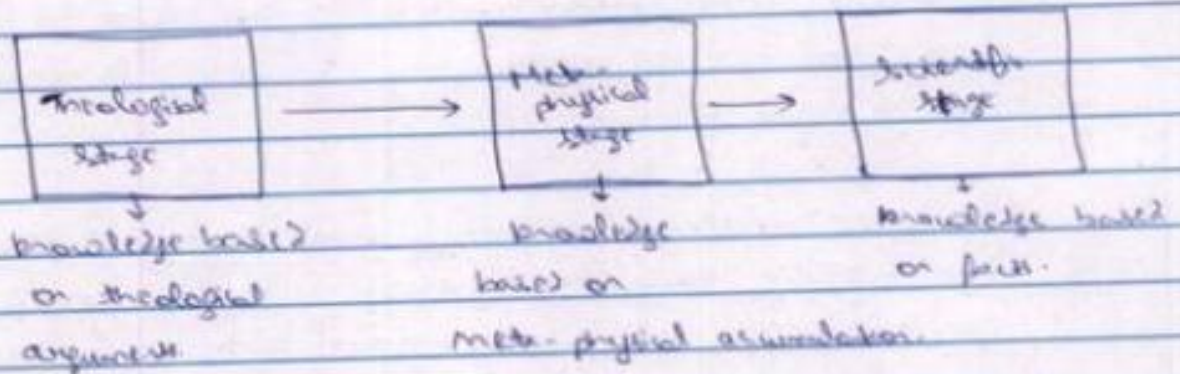 Theological
stage
Meta-
physical
stage
Scientific
stage
knowledge based
on theological
arguments.
knowledge
based on
meta-physical accumulation.
knowledge based
on facts.